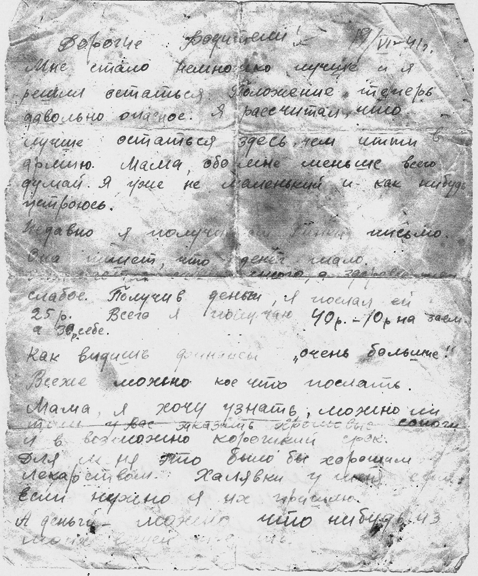 Дорогие родители! 19/VI-41г.
Мне стало немножко лучше и я
решил остаться. Положение теперь
довольно опасное. Я рассчитал, что
лучше остаться здесь, чем итти в
армию. Мама, обо мне меньше всего
думай. Я уже не маленький и как нибудь
устроюсь.
Недавно я получил от письмо.
Она пишет, что денег мало,
а здоровье
слабое. Получив деньги, я послал ей
25 р. Всего я получаю 40р.-10р на заем.
а 30р себе.
Как видишь финансы „очень большие".
Всеже можно кое что послать.
Мама, я хочу узнать, можно ли
у вас заказать хромовые сапоги
и в возможно короткий срок.
Для меня это было бы хорошим
лекарством. Халявки у меня есть
если нужно я их пришлю.
А деньги - можно что нибудь из